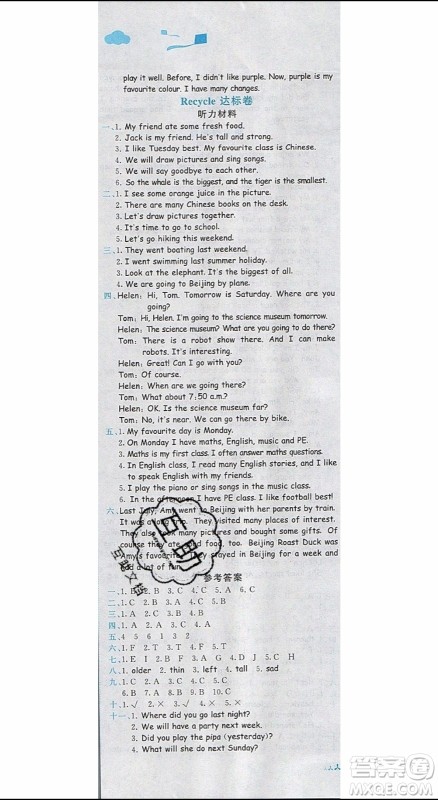 play it well. Before, I didn't like purple. Now, purple is my
favourite colour. I have many changes.
Recycle 达标卷
听力材料
一、1. My friend ate some fresh food.
2. Jack is my friend. He's tall and strong.
3. I like Tuesday best. My favourite class is Chinese.
4. We will draw pictures and sing songs.
5. We will say goodbye to each other.
6. So the whale is the biggest, and the tiger is the smallest.
二、1. I see some orange juice in the picture.
2. There are many Chinese books on the desk.
3. Let's draw pictures together.
4. It's time to go to school.
5. Let's go hiking this weekend.
三、1. They went boating last weekend.
2. I went swimming last summer holiday.
3. Look at the elephant. It's the biggest of all.
4. We are going to Beijing by plane.
四、Helen: Hi, Tom. Tomorrow is Saturday. Where are you going?
Tom: Hi, Helen. I'm going to the science museum tomorrow.
Helen: The science museum? What are you going to do there?
Tom: There is a robot show there. And I can make
robots. It's interesting.
Helen: Great! Can I go with you?
Tom: Of course.
Helen: When are we going there?
Tom: What about 7:50 a.m.?
Helen: OK. Is the science museum far?
Tom: No, it's near. We can go there by bike.
五、1. My favourite day is Monday.
2. On Monday I have maths, English, music and PE.
3. Maths is my first class. I often answer maths questions.
4. In English class, I read many English stories, and I like
to speak English with my friends.
5. I play the piano or sing songs in the music class.
6. In the afternoon I have PE class. I like football best!
六、Last July, Amy went to Beijing with her parents by train.
It was a long trip. They visited many places of interest.
There are many and bought some gifts. Of
course they ate delicious food. Beijing Roast Duck was
Amy's favourite. They stayed in Beijing for a week and
had a lot of fun.
参考答案
一、1. B 2. A 3. C 4. C 5. A 6. B
二、1. B 2. B 3. C 4. A 5. B
三、1. A 2. C 3. B 4. C
四、1. A 2. A 3. C 4. B 5. C
五、4 5 6 1 3 2
六、1. F 2. T 3. F 4. F 5. T
七、1. E I 2. B J 3. F G 4. D H 5. A C
八、1. older 2. thin 3. left 4. tall 5. sad
九、1. C 2. B 3. A 4. C 5. C
6. B 7. A 8. C 9. B 10. C
十、1. √ 2. × 3. √ 4. × 5. √
十一、1. Where did you go last night?
2. We will have a party next week.
3. Did you play the pipa (yesterday)?
4. What will we do next Sunday?
互助
互助文档
答案圈
MXQE.COM